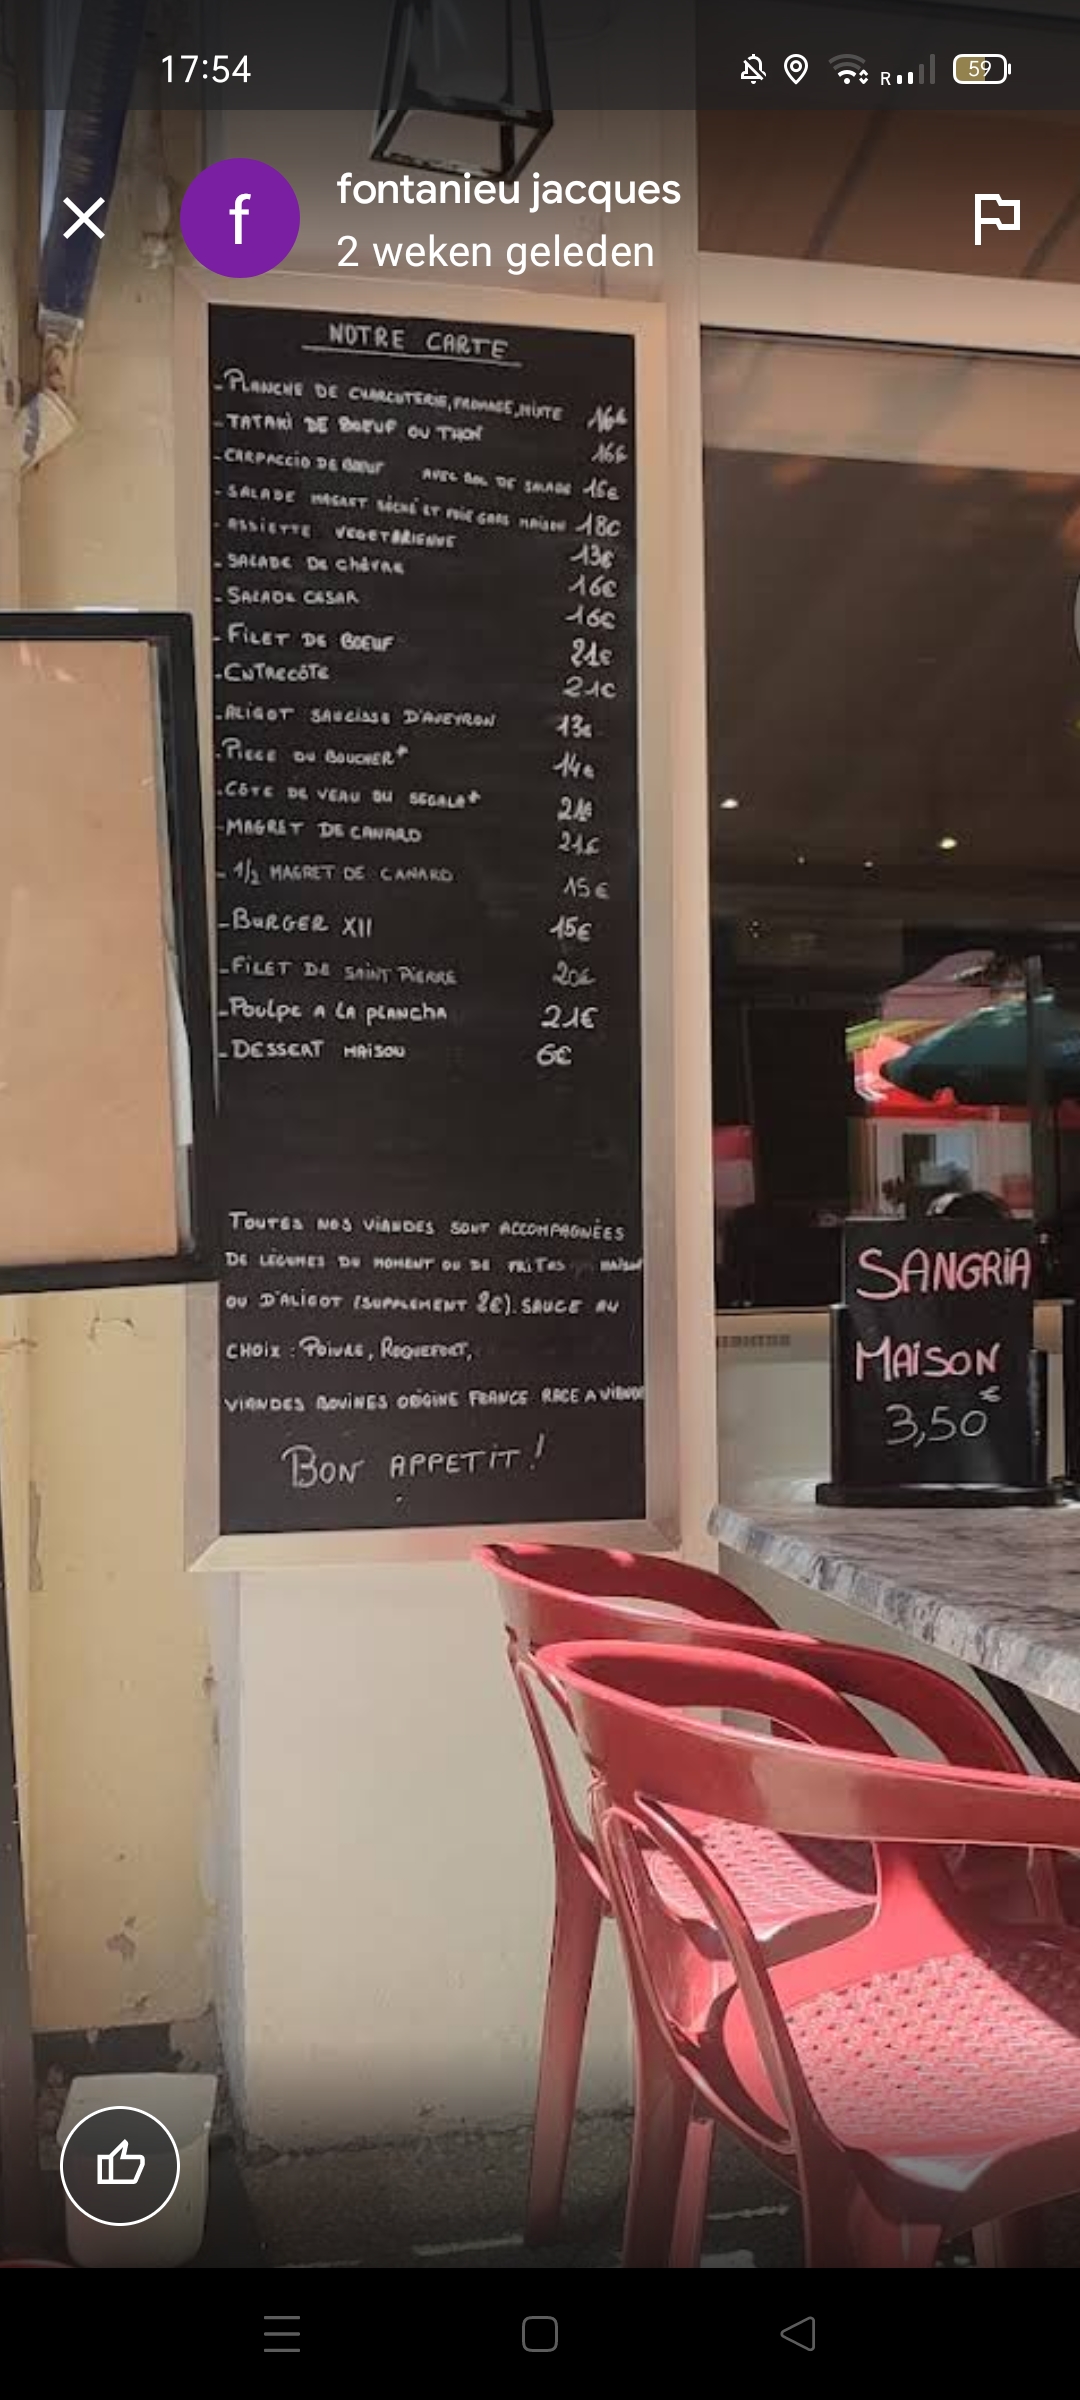 17:54
R
59
fontanieu jacques
f
2 weken geleden
NOTRE CARTE
- PLANCHE DE CHARCUTERIE, FROMAGE, MIXTE 16€
- TATAKI DE BOEUF OU THON 16€
- CARPACCIO DE BOEUF AVEC BOL DE SALADE 15€
- SALADE MAGRET SÉCHÉ ET FOIE GRAS MAISON 18€
- ASSIETTE VEGETARIENNE 13€
- SALADE DE CHÈVRE 16€
- SALADE CESAR 16€
- FILET DE BOEUF 21€
- ENTRECÔTE 21€
- ALIGOT SAUCISSE D'AVEYRON 13€
- PIECE DU BOUCHER* 14€
- CÔTE DE VEAU DU SEGALA* 21€
- MAGRET DE CANARD 21€
- 1/2 MAGRET DE CANARD 15€
- BURGER XII 15€
- FILET DE SAINT PIERRE 20€
- POULPE A LA PLANCHA 21€
- DESSERT MAISON 6€
TOUTES NOS VIANDES SONT ACCOMPAGNÉES
DE LÉGUMES DU MOMENT OU DE FRITES MAISON
OU D'ALIGOT (SUPPLEMENT 2€). SAUCE AU
CHOIX : POIVRE, ROQUEFORT,
VIANDES BOVINES ORIGINE FRANCE RACE A VIANDE
BON APPETIT !
SANGRIA
MAISON
3,50€